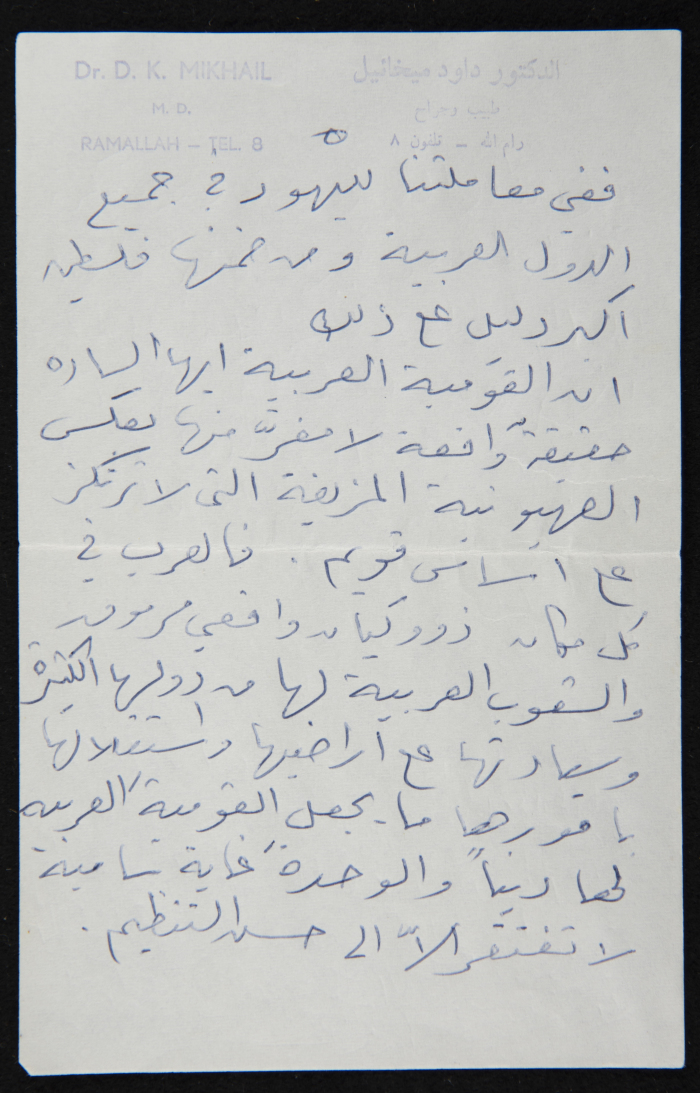 Dr. D. K. MIKHAIL
الدكتور داود ميخائيل
M. D.
طبيب وجراح
RAMALLAH – TEL. 8
رام الله – تلفون ٨
٥
ففي معاملتنا لليهود في جميع
الدول العربية ومن ضمنها فلسطين
أكبر دليل على ذلك
ان القومية العربية ايها الساده
حقيقة واقعة لا مفرّ منها بعكس
الصهيونية المزيفة التي لا ترتكز
على اساس قويم . فالعرب في
كل مكان ذوو كيان واقعي مرموق
والشعوب العربية لها من دولها الكثيرة
وسيادتها على أراضيها واستقلالها
بامورها ما يجعل القومية العربيه
لها ديناً والوحدة غاية سامية
لا تفتقر الاّ الى حسن التنظيم .